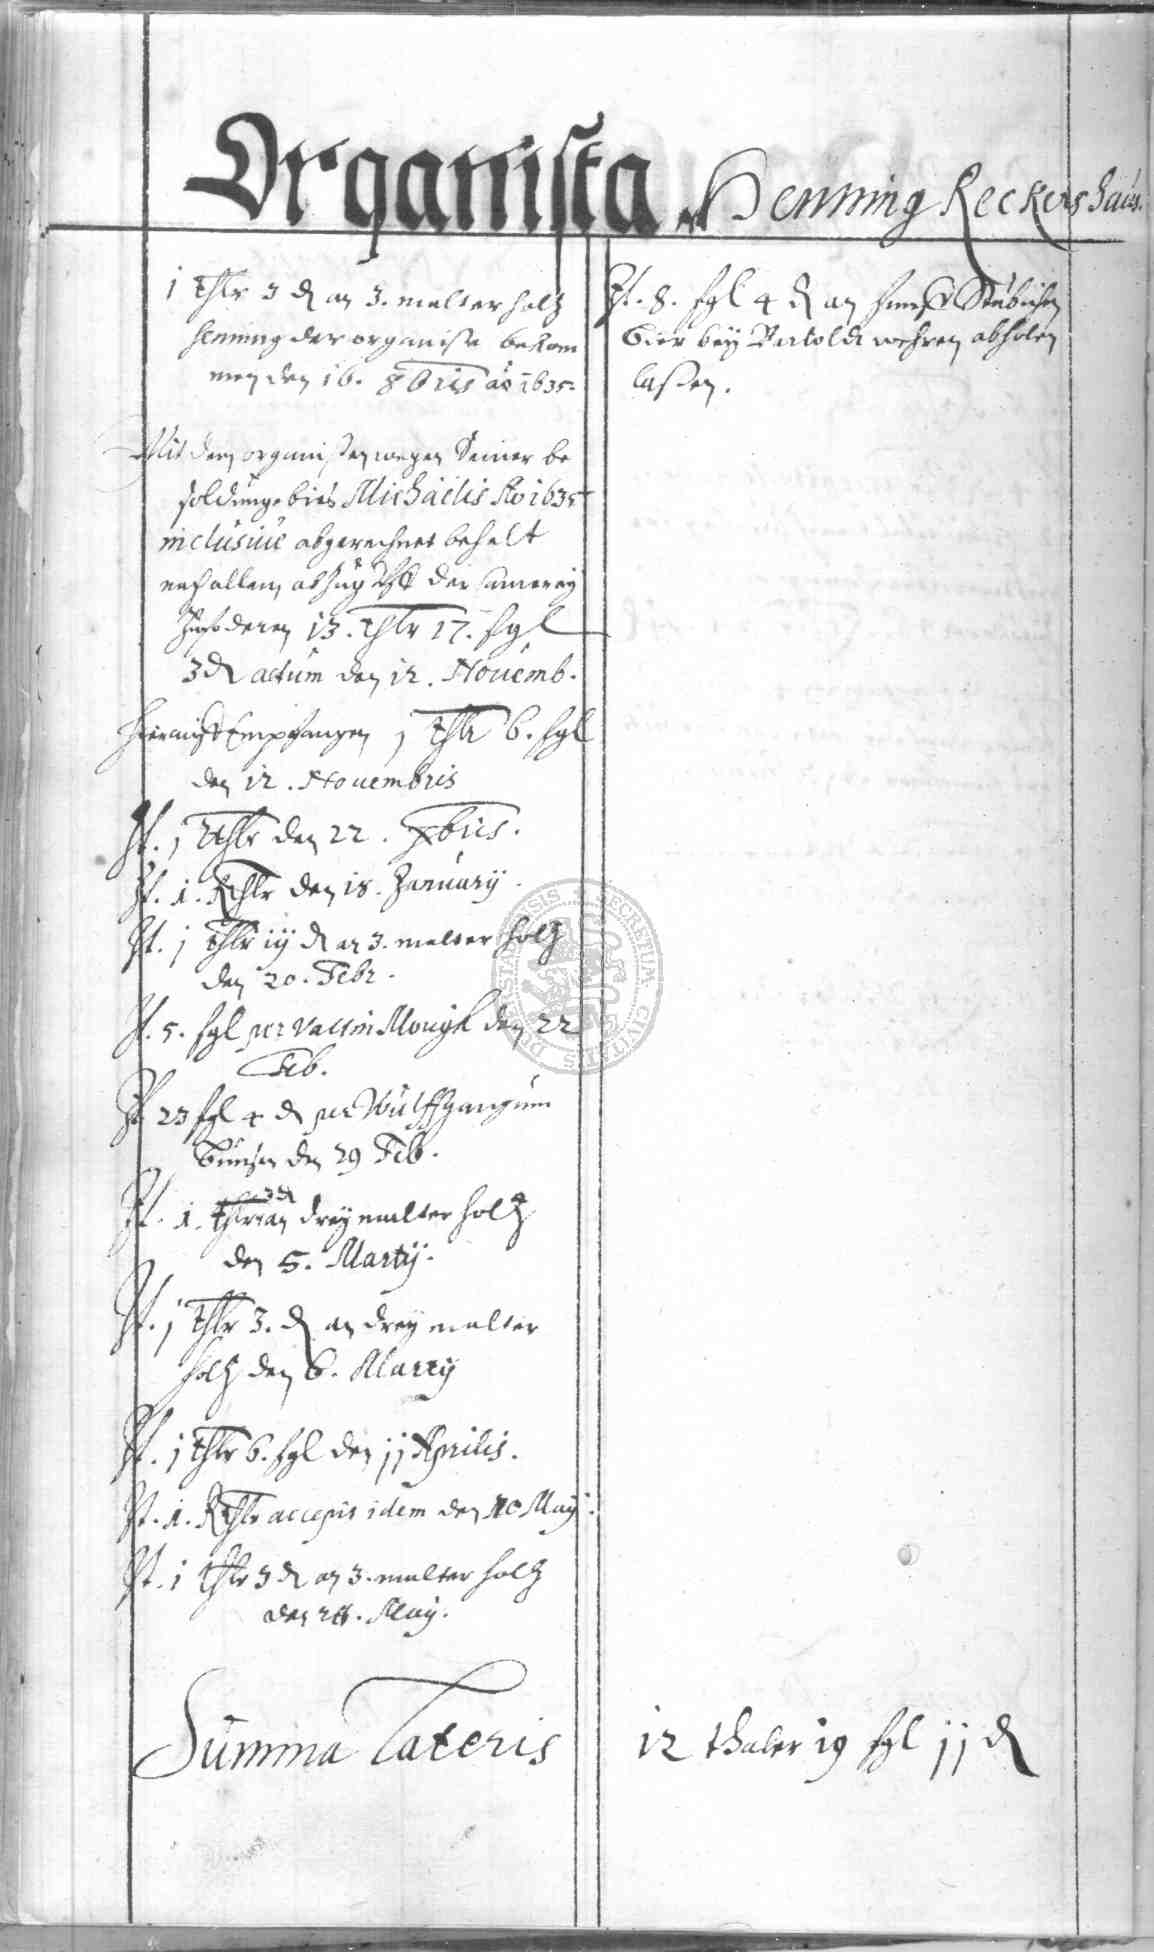 Organista Henning Reckershaus.
1 thlr 3 d an 3. malter holtz
Henning der organiste bekom
men den 16. 8bris ao 1635
Mit dem organisten wegen Seiner be
soldunge bies Michaelis Ao 1635
inclusiue abgerechnet behelt
nach allem abzug der Camerey
zufoderen 13. thlr 17. sgl
3 d actum den 12. Nouemb.
Hierauff Empfangen 1 thlr 6. sgl
den 12. Nouembris
It. 1 Rthlr den 22. Xbris.
It. 1. Rthlr den 18. January
It. 1 thlr iij d an 3. malter holtz
den 20. Febr.
It. 5. sgl per Valtin den 22
Feb.
It 23 sgl 4 d per Wulffgangum
Bunsen den 29 Feb.
It. 1. thlr 3 d an drey malter holtz
den 5. Martij.
It. 1 thlr 3. d an drey malter
holtz den 6. Martij
It. 1 thlr 6. sgl den 11 Aprilis.
It. 1. Rthlr accepit idem den 10 May.
It. 1 thlr 3 d an 3. malter holtz
den May.
It. 8. sgl 4 d an Stübichen
Bier bey abholen
laßen.
Summa Lateris 12 thaler 19 sgl 11 d
SECRETUM CIVITATIS